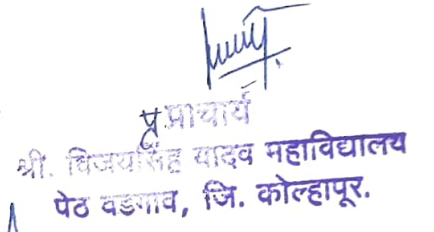 प्र प्राचार्य
श्री. विजयसिंह यादव महाविद्यालय
पेठ वडगाव, जि. कोल्हापूर.